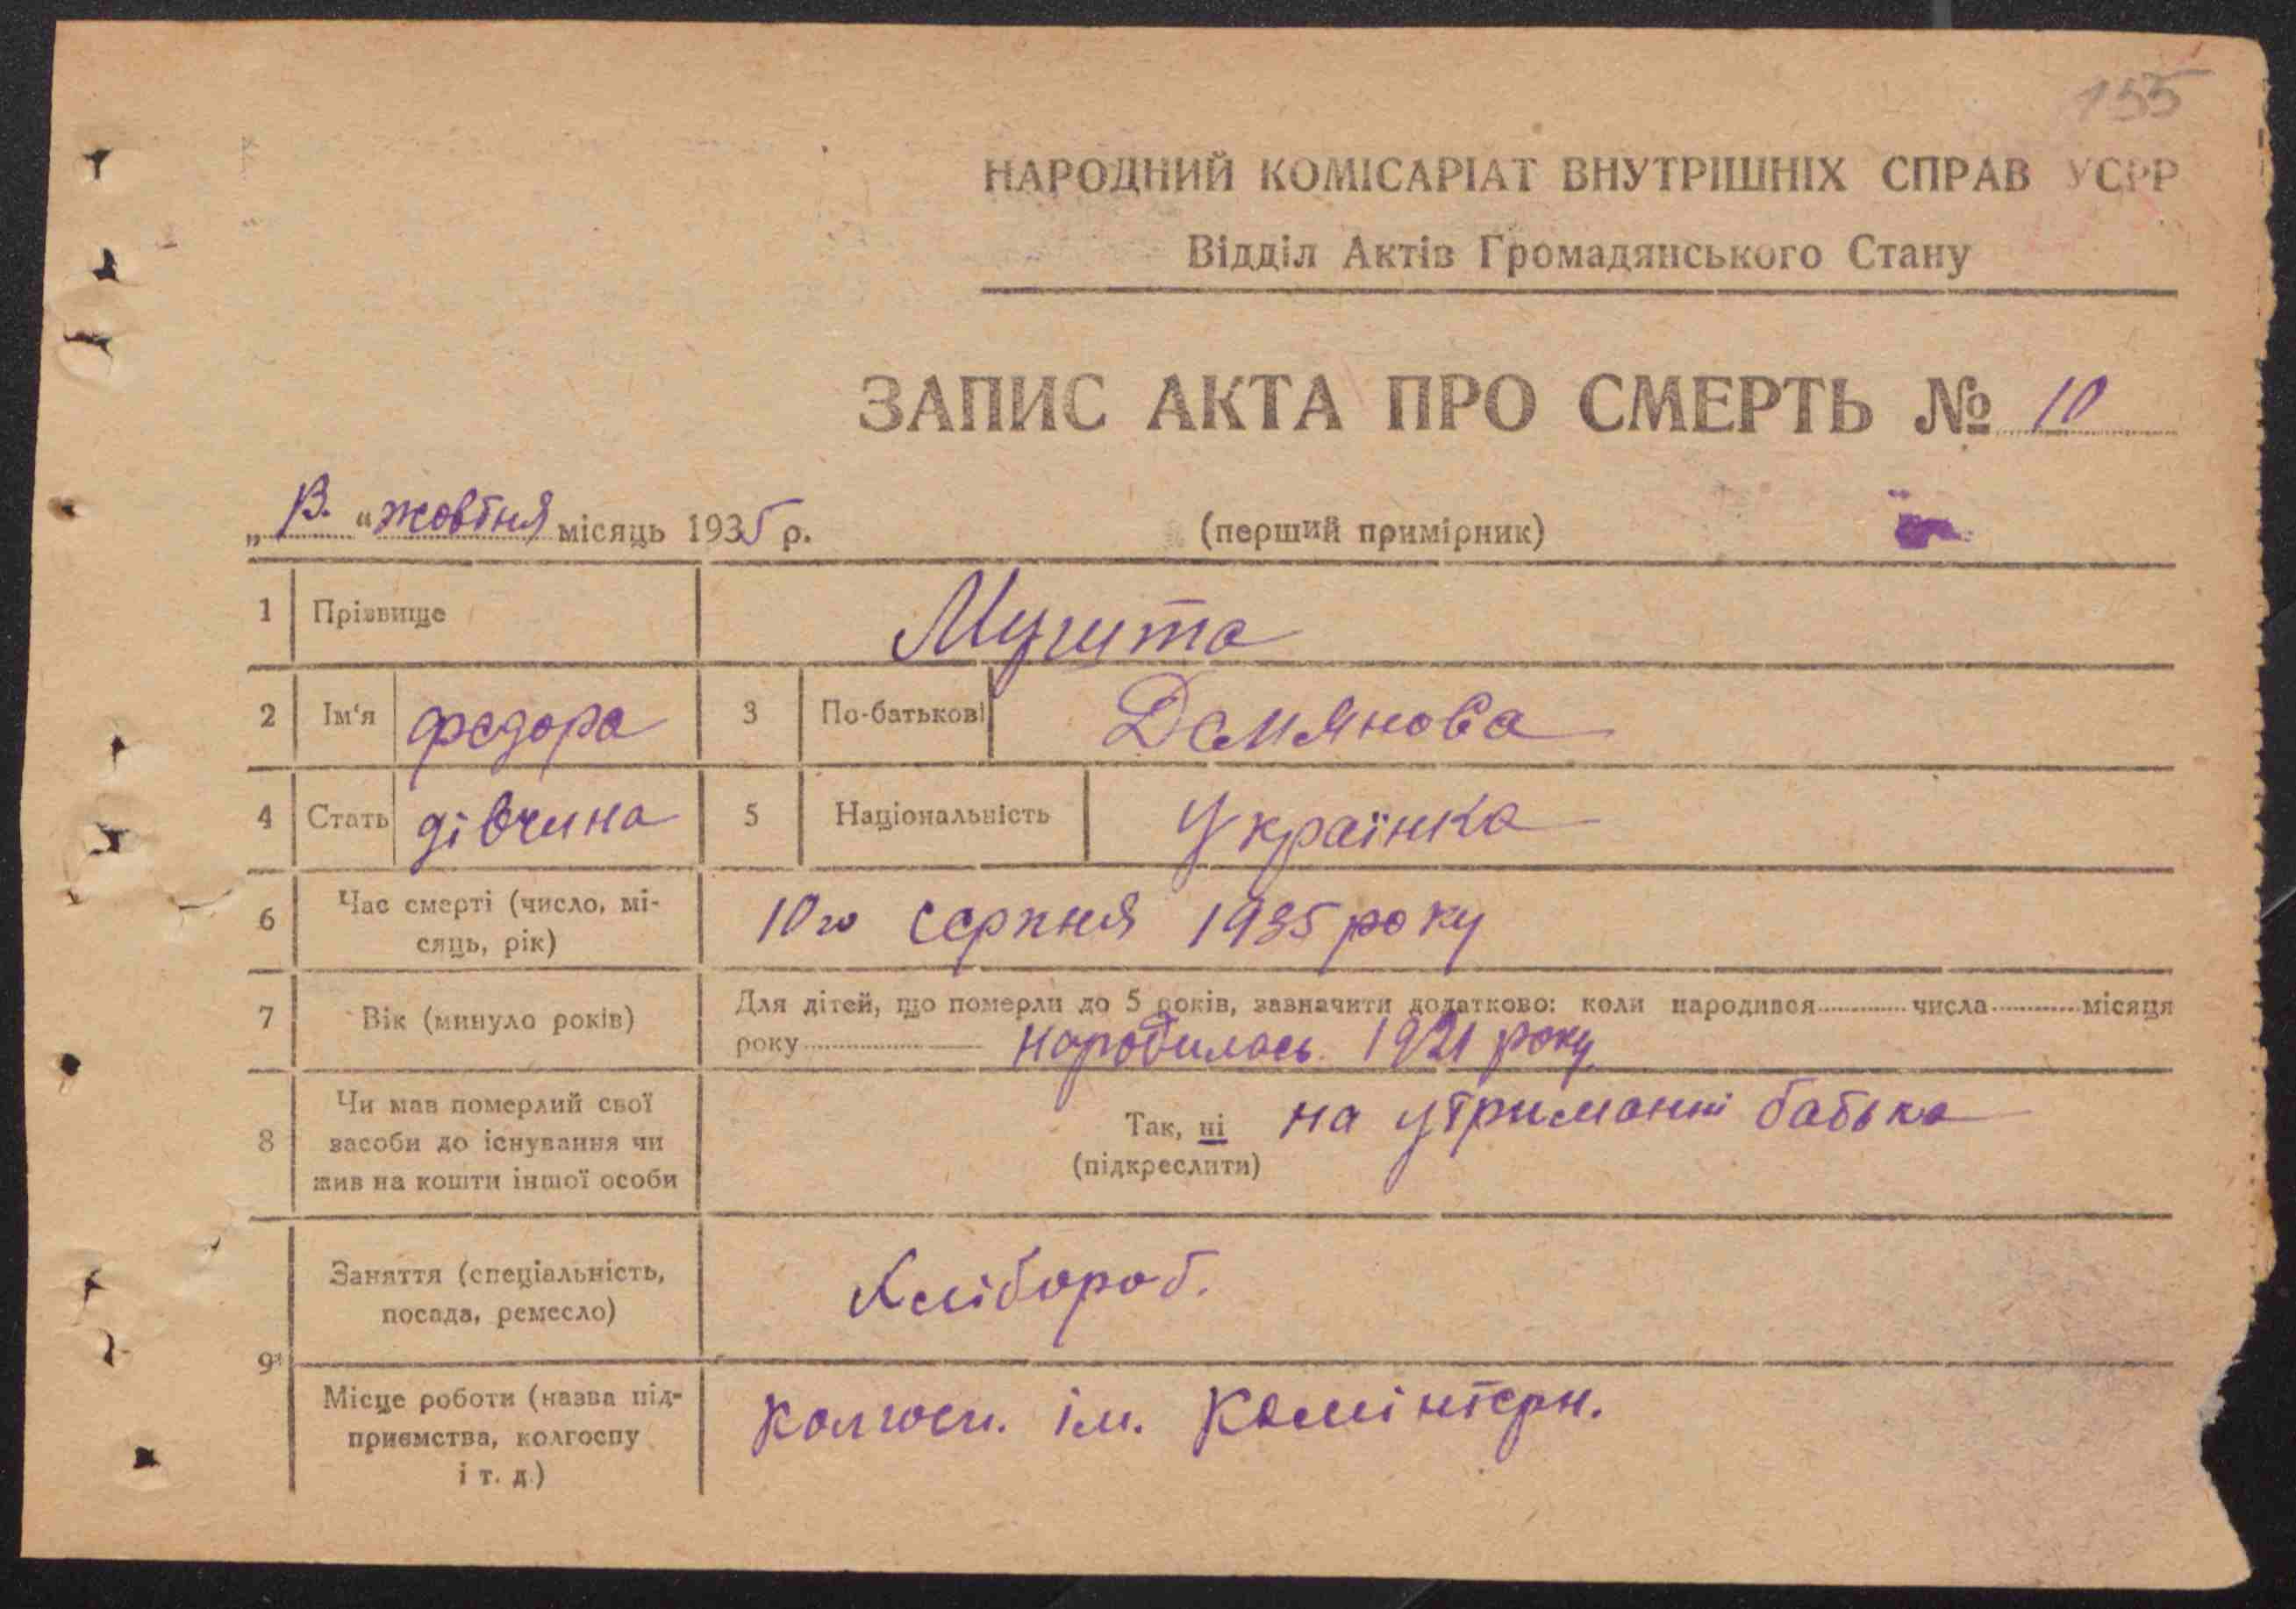 155
НАРОДНИЙ КОМІСАРІАТ ВНУТРІШНІХ СПРАВ УСРР
Відділ Актів Громадянського Стану
ЗАПИС АКТА ПРО СМЕРТЬ № 10
„13.“ жовтня місяць 1935 р.
(перший примірник)
1 Прізвище
2 Ім'я федора 3 По-батькові Демянова
4 Стать дівчина 5 Національність Українка
6 Час смерті (число, мі-
сяць, рік)
10го серпня 1935 року
7 Вік (минуло років)
Для дітей, що померли до 5 років, зазначити додатково: коли народився числа місяця
року народилась 1921 року
8 Чи мав померлий свої
засоби до існування чи
жив на кошти іншої особи
Так, ні на утриманні батька
(підкреслити)
9 Заняття (спеціальність,
посада, ремесло)
Хлібороб.
Місце роботи (назва під-
приємства, колгоспу
і т. д.)
Колгосп. ім. Комінтерн.